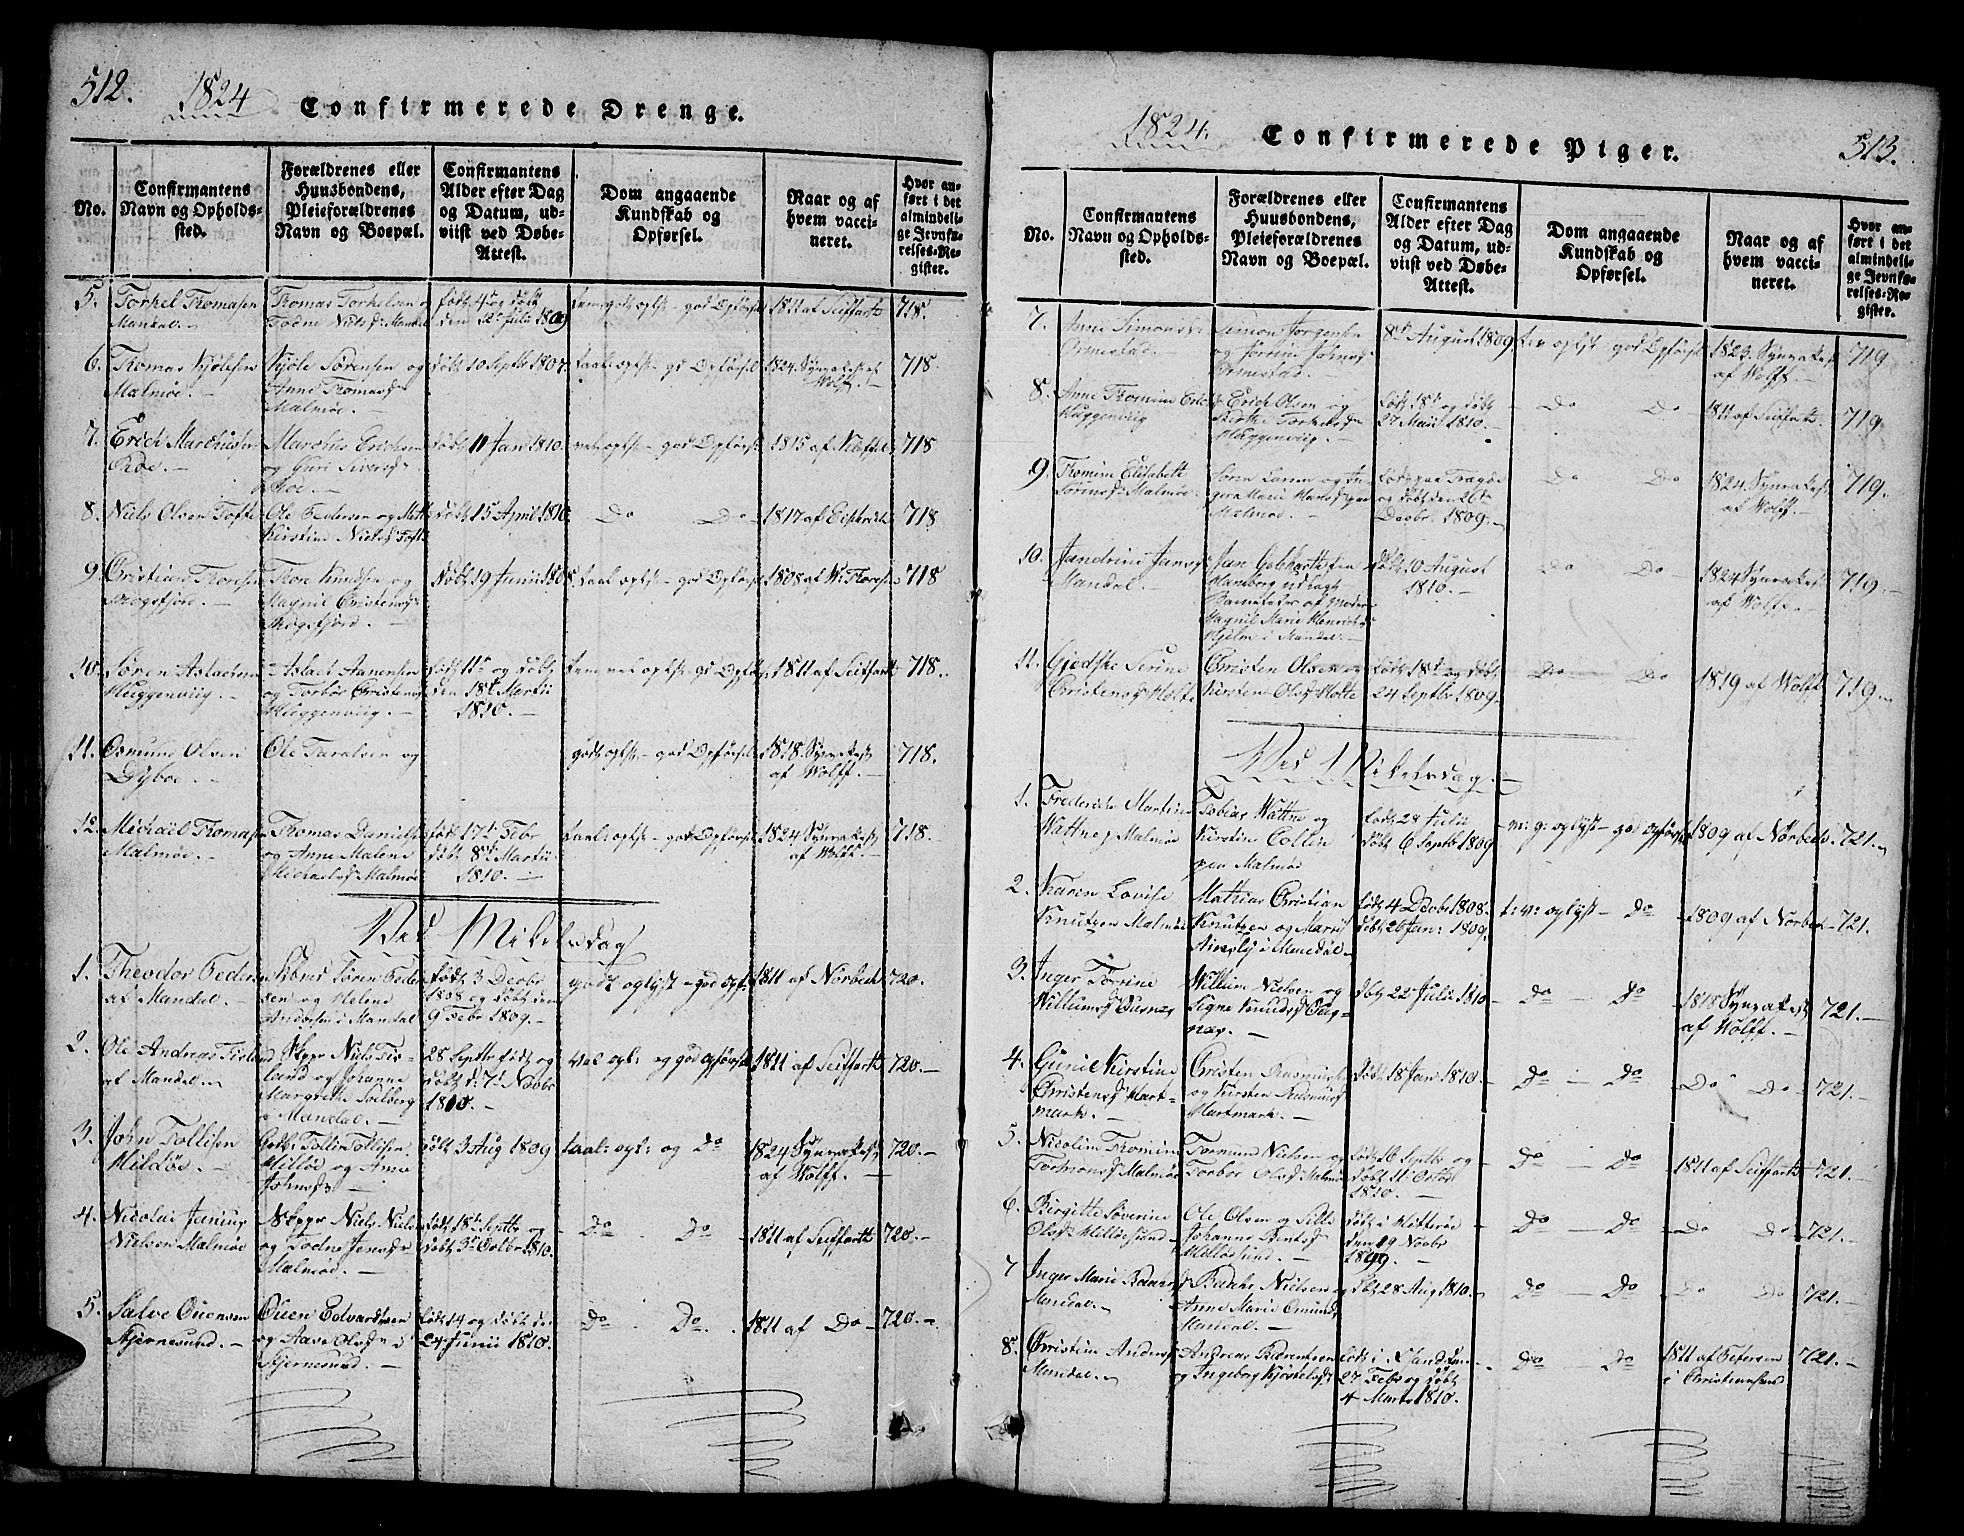 512.
1824
Confirmerede Drenge.
No.
Confirmantens
Navn og Opholds-
sted.
Forældrenes eller
Huusbondens,
Pleieforældrenes
Navn og Boepæl.
Confirmantens
Alder efter Dag
og Datum, ud-
viist ved Døbe-
Attest.
Dom angaaende
Kundskab og
Opførsel.
Naar og af
hvem vacci-
neret.
Hvor an-
ført i det
almindeli-
ge Jevnfø-
relses-Re-
gister.
5. Torkel Thomasen
Mandal.
Thomas Torkelsen
Todne Nielsd. Mandal
god Opførsel
1811 af Seiffarth
718.
6. Thomas Kjølsen
Malmøe.
Kjøle Sørensen og
Anne Thomasd
Malmøe.
døbt 10 Septbr 1807.
taal: oplyst - gd Opførsel
1824. Synrakest af
Wolff.
718
7. Erich Marchusen
Roe.
Marchus Erichsen
og Guri Siversd
Roe.
døbt 11 Jan 1810.
vel oplyst - god Opførsel
1815 af
718
8. Niels Olsen Tofte
Ole Pedersen og Mette
Kirstine Nielsd Tofte
døbt 15 April 1810.
Do Do
1817 af
718
9. Christian Thoresen
Skogsfjord.
Thore Knudsen og
Magnil Christensd
Skogsfjord.
døbt 19 Junii 1808.
taal oplyst - god Opførsel
1808 af W. Thoresen
718
10. Søren Aslacksen
Huggenviig
Aslack Aanensen
og Torbor Christensd
Huggenviig.
født 11t og døbt
den 18t Martii
1810.
vel oplyst gd Opførsel
1811 af Seiffarth
718.
11. Osmund Olsen
Dyboe.
Ole Taralsen og
godt oplyst - god Opførsel
1818. Synrakest
af Wolff.
718.
12. Michaël Thomasen
Malmøe.
Thomas Danielsen
og Anne Malene
Michaelsd Malmøe
født 17t Febr
døbt 8t Martii
1810.
taal: oplyst - god Opførsel
1824 Synrakest
af Wolff.
718.
Ved Mikelsdag
1. Theodor Pedersen
af Mandal.
Søren Peder
sen og Helene
Andersen i Mandal
født 3 Decbr
1808 og døbt den
9 Febr 1809.
godt oplyst - god opf.
1811 af Norbech
720.
2. Ole Andreas Fisland
af Mandal.
Skppr Niels Fis-
land og Johanne
Margrethe Solberg
i Mandal.
28 Septbr født og
døbt d: 7t Novbr
1810.
vel opl: og god opførsel
1811 af Seiffarth
720.
3. John Tollisen
Hildøe.
Tollis Tollisen
Hilløe og Anne
Johnsd
døbt 3 Aug 1809
taal: opl: og Do
1824 Synrakest
af Wolff.
720.
4. Nicolai Jenius
Nielsen Malmøe
Skppr Niels Nielsen
og Todne Jensd
Malmøe.
født 18t Septbr og
døbt 3t Octbr 1810.
Do Do
1811 af Seiffarth
720.
5. Salve Ouensen
Stjernesund.
Ouen Edvardsen
og Aase Olsd i
Stjernesund.
født 14 og døbt den
24 Junii 1810.
Do Do.
1811 af Do
720.
1824.
Confirmerede Piger.
513.
No.
Confirmantens
Navn og Opholds-
sted.
Forældrenes eller
Huusbondens,
Pleieforældrenes
Navn og Boepæl.
Confirmantens
Alder efter Dag
og Datum, ud-
viist ved Døbe-
Attest.
Dom angaaende
Kundskab og
Opførsel.
Naar og af
hvem vacci-
neret.
Hvor an-
ført i det
almindeli-
ge Jevnfø-
relses-Re-
gister.
7. Anne Simonsd
Ormestad.
Simon Jørgensen
og Jørine Johnsd
Ormestad.
8t August 1809
t: v oplyst god Opførsel
1823. Synrakest
af Wolff.
719.
8. Anne Thomine Erichsd
Huggenviig
Erich Olsen og
Birthe Torkelsd
Huggenviig.
født 18t og døbt
27 Maii 1810.
Do Do
1811 af Seiffarth
719.
9. Thomine Elisabeth
Sørensd Malmøe.
Søren Larsen og
Marie Hansd paa
Malmøe.
født paa Tregde
og døbt den 26t
Decbr. 1809.
Do Do
1824 Synrakest
af Wolff.
719.
10. Jandrine Jansd
Mandal.
Jan Gebhardt fra
Hamborg udlagt
Barnefader af Moder
Magnil Marie Henrichsd
Hjelm i Mandal.
døbt 10 August
1810.
Do Do
1824 Synrakest
af Wolff.
719.
11. Gjedske Serine
Christensd Holte
Christen Olsen og
Kirsten Olsd Holte
født 18t og døbt
24 Septbr 1809.
Do Do
1819 af Wolff
719.
Ved Mikelsdag.
1. Frederiche Martine
Wattne, Malmøe
Tobias Wattne og
Kirstine Collin
paa Malmøe
født 28 Julii
døbt 6 Septbr 1809
m: g: oplyst - god opførsel
1809 af Norbech
721.
2. Karen Lovise
Knutzen Malmøe
Mathias Christian
Knutzen og Marie
Ainsly i Mandal.
født 4 Decbr 1808.
døbt 26 Jan: 1809.
t: v: oplyst - Do
1809 af Norbech
721.
3. Inger Torine
Willumsd
Willum Nielsen og
Signe Knudsd
døbt 22 Julii 1810
Do Do
1818 Synrakest
af Wolff.
721.
4. Gunild Kirstine
Christensd Hart-
mark.
Christen Rasmussen
og Kirsten Rasmusd
Hartmark.
døbt 18 Jan 1810.
Do Do
Do Do
721.
5. Nicoline Thomine
Tormonsd Malmøe
Tormund Nielsen og
Torbor Olsd Malmøe
født 16 Septbr og
døbt 11 Octbr
1810.
Do Do
1811 af Seiffarth
721.
6. Birgitte Severine
Olsd Hilløesund
Ole Olsen og Sille
Johanne Berntsd
Hilløesund.
døbt i Hitterøe
den 19 Novbr
1809.
Do Do
Do Do
721.
7 Inger Marie
Mandal.
Nielsen og
Anne Marie Omundsd
Mandal.
døbt 28 Aug 1810.
Do Do
Do Do
721.
8. Christine Andersd
Mandal.
Andreas Berentsen
og Ingeborg Kjøstelsd
født i
27 Febr og døbt
4 Marts 1810.
Do Do
1811 af Petersen
i Christianssand
721.